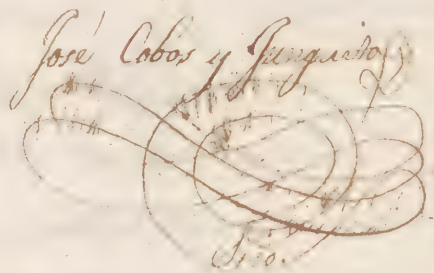 José Cobos y Junquito